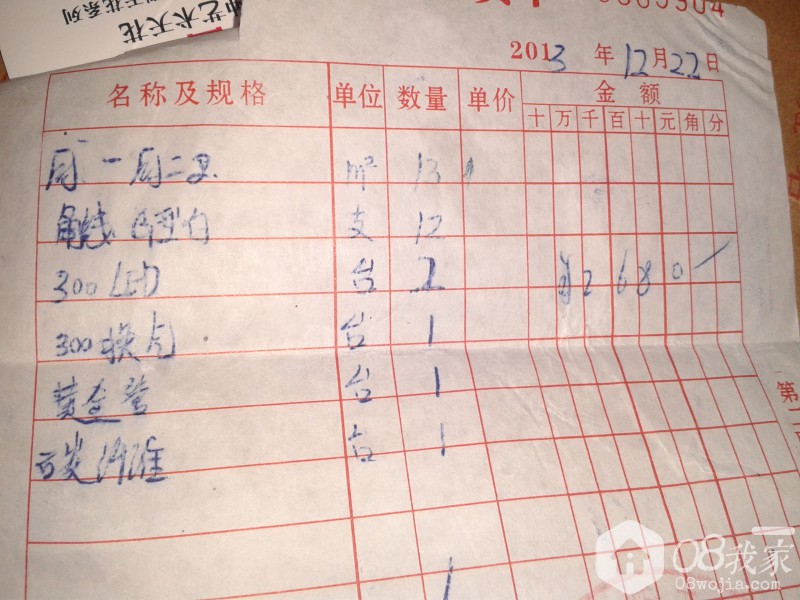 艺术天花
天花系列
2013 年 12 月 22 日
名称及规格 单位 数量 单价 金额
十 万 千 百 十 元 角 分
周一周二 m² 13
角线 支 12
300 LED 台 2
¥2680
300换气 台 1
黄金管 台 1
碳纤维 台 1
第二
08我家
08wojia.com